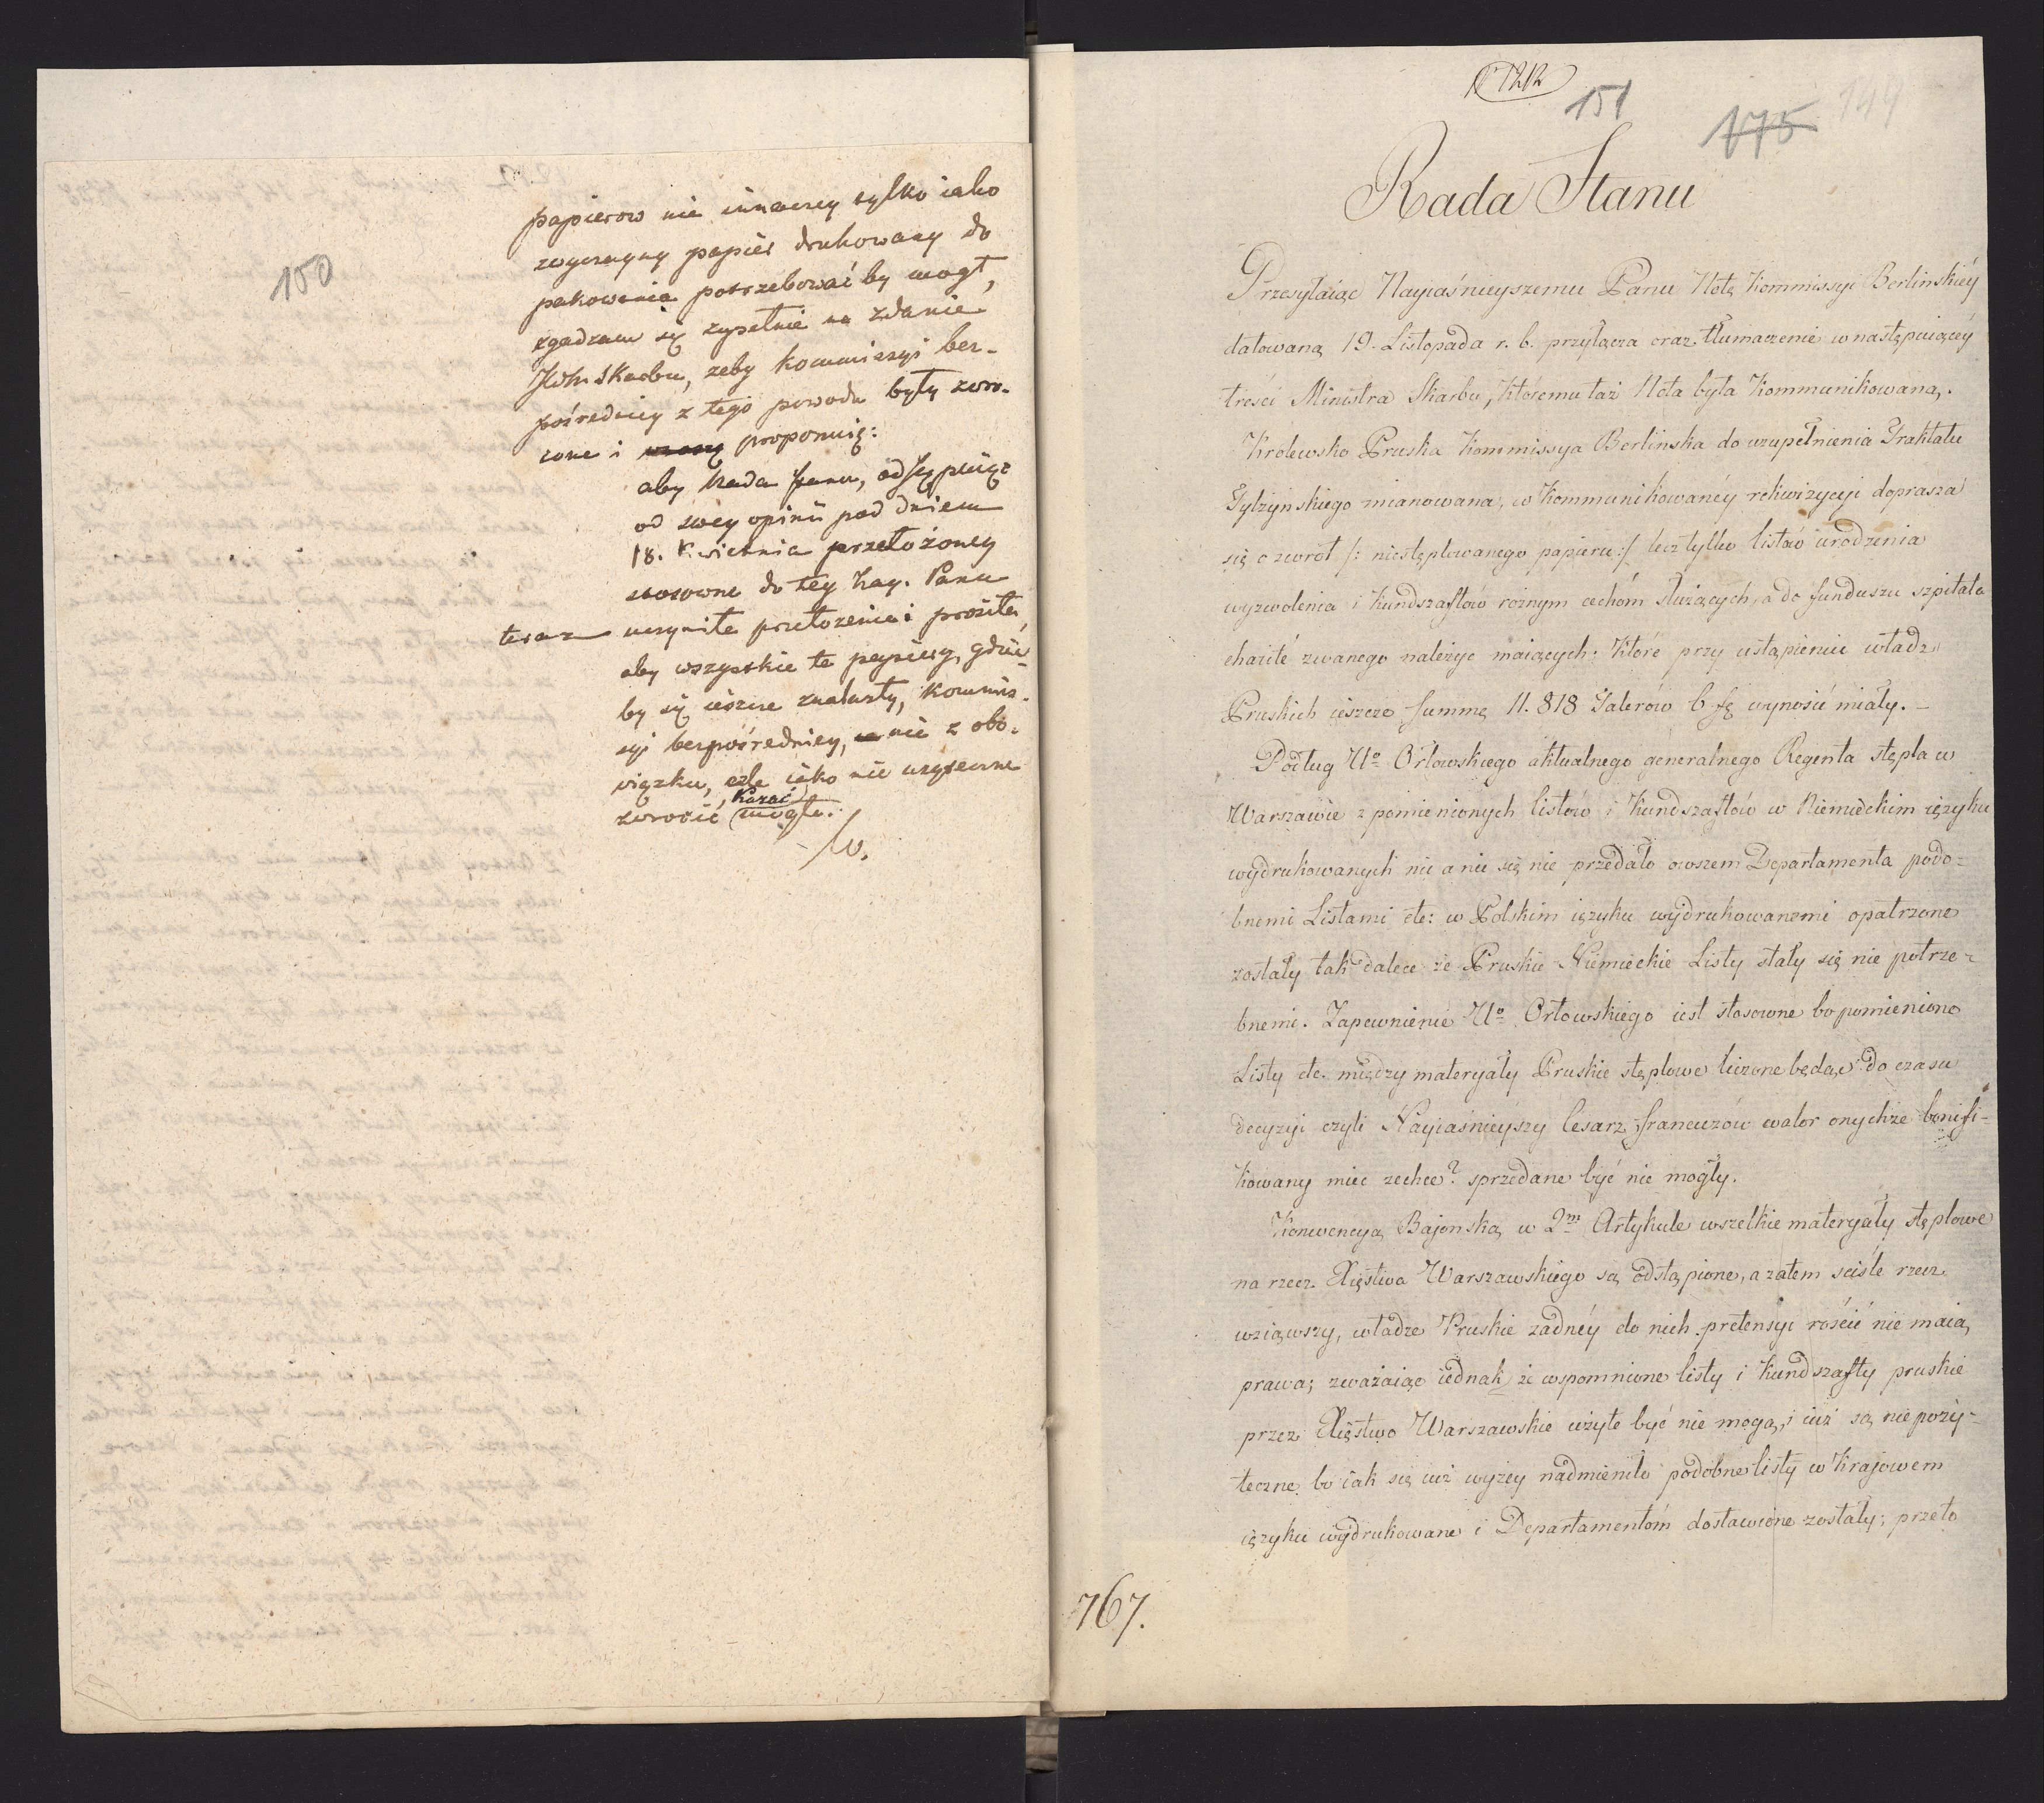 150
papierow nie inaczey tylko iako
zwyczayny papier drukowany do
pakowania potrzebować by mogł,
zgadzam się zupełnie na zdanie
JWM Skarbu, żeby kommissyi bez-
pośredniey z tego powodu były zwro-
cone i proponuię:
aby Rada Stanu, odstępuiąc
od swey opinii pod dniem
18. Kwietnia przełożoney
stosowne do tey Nay. Panu
teraz uczyniła przełożenie i prosiła,
aby wszystkie te papiery, gdzie-
by się ieszcze znalazły, kommis-
syi bezpośredniey, nie z obo-
wiązku, ale iako nie użyteczne
zwrocić kazać mogła.
W.
1212
151
175
144
Rada Stanu
Przesyłaiąc Nayiaśnieyszemu Panu Notę Kommissyi Berlinskiéy
datowaną 19. Listopada r. b. przyłącza oraz tłumaczenie w następuiącéy
treści Ministra Skarbu, któremu taż Nota była Kommunikowaną.
Królewsko Pruska Kommissya Berlinska do uzupełnienia Traktatu
Tylżynskiego mianowana, w Kommunikowanéy rekwizycyi doprasza
się o zwrot /: niestęplowanego papieru :/ lecz tylko listów urodzenia
wyzwolenia i Kundszaftów rożnym cechóm służących, a do funduszu szpitala
charité zwanego należyć maiących: Które przy ustąpieniu władz
Pruskich ieszcze summę 11.818 Talerów 6 fę wynosić miały. –
Podług Uo Orłowskiego aktualnego generalnego Regenta stępla w
Warszawie z pomienionych listów i Kundszaftów w Niemieckim ięzyku
wydrukowanych nic a nic się nie przedało owszem Departamenta podo-
bnemi Listami etc: w Polskim ięzyku wydrukowanemi opatrzone
zostały tak dalece że Pruskie Niemieckie Listy stały się nie potrze-
bnemi. Zapewnienie Uo Orłowskiego iest stosowne bo pomienione
Listy etc. między materyały Pruskie stęplowe liczone będąc do czasu
decyzyi czyli Nayiaśnieyszy Cesarz francuzów walor onychże bonifi-
kowany mieć zechce? sprzedane być nie mogły.
Konwencya Bajonska w 2m Artykule wszelkie materyały stęplowe
na rzecz Xięstwa Warszawskiego są odstąpione, a zatem sciśle rzecz
wziąwszy, władze Pruskie żadnéy do nich pretensyi rościć nie maią
prawa; zważaiąc iednak że wspomnione listy i Kundszafty pruskie
przez Xięstwo Warszawskie użyte być nie mogą, i iuż są nie poży-
teczne bo iak się iuż wyżey nadmieniło podobne listy w Krajowem
ięzyku wydrukowane i Departamentóm dostawione zostały; przeto
767.